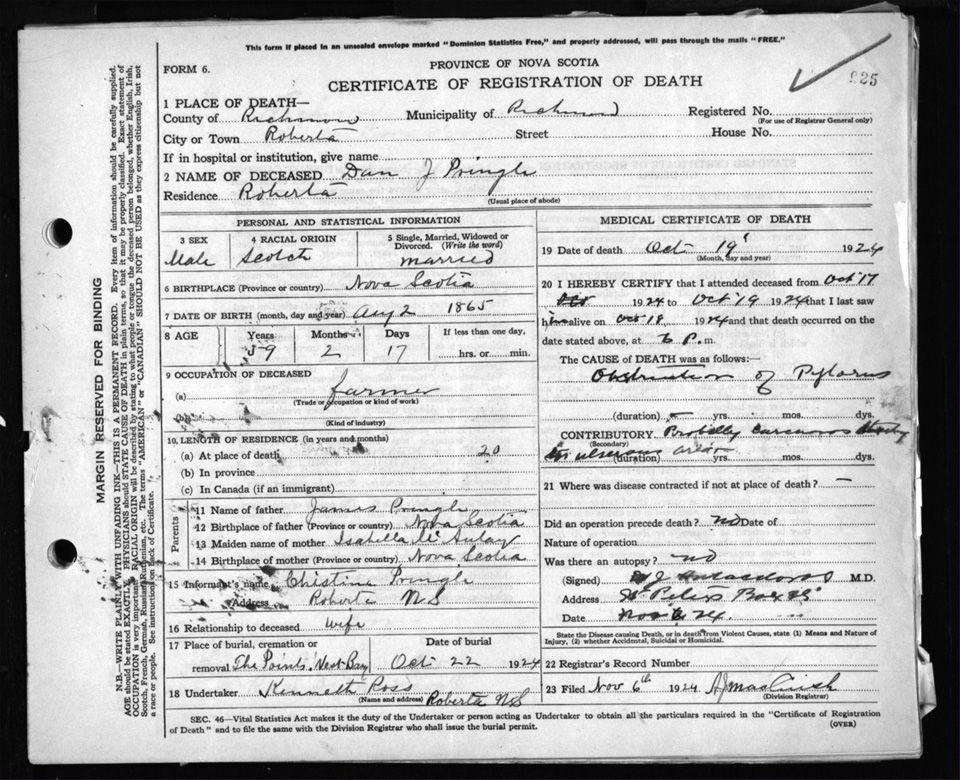 This form if placed in an unsealed envelope marked "Dominion Statistics Free," and properly addressed, will pass through the mails "FREE."
PROVINCE OF NOVA SCOTIA
FORM 6.
CERTIFICATE OF REGISTRATION OF DEATH
925
1 PLACE OF DEATH—
County of Richmond Municipality of Richmond Registered No.
(For use of Registrar General only)
City or Town Roberta Street House No.
If in hospital or institution, give name
2 NAME OF DECEASED Dan J Pringle
Residence Roberta
(Usual place of abode)
PERSONAL AND STATISTICAL INFORMATION
3 SEX 4 RACIAL ORIGIN 5 Single, Married, Widowed or Divorced. (Write the word)
Male Scotch married
6 BIRTHPLACE (Province or country) Nova Scotia
7 DATE OF BIRTH (month, day and year) Aug 2 1865
8 AGE Years Months Days If less than one day,
59 2 17 hrs. or min.
9 OCCUPATION OF DECEASED
(a) farmer
(Trade or occupation or kind of work)
(b)
(Kind of industry)
10. LENGTH OF RESIDENCE (in years and months)
(a) At place of death 20
(b) In province
(c) In Canada (if an immigrant)
Parents
11 Name of father James Pringle
12 Birthplace of father (Province or country) Nova Scotia
13 Maiden name of mother Isabella McAulay
14 Birthplace of mother (Province or country) Nova Scotia
15 Informant's name Christine Pringle
Address Roberta N S
16 Relationship to deceased wife
17 Place of burial, cremation or Date of burial
removal The Points West Bay Oct 22 1924
18 Undertaker Kenneth Ross
(Name and address) Roberta N S
MEDICAL CERTIFICATE OF DEATH
19 Date of death Oct 19 1924
(Month, day and year)
20 I HEREBY CERTIFY that I attended deceased from Oct 17
1924 to Oct 19 1924 that I last saw
him alive on Oct 18 1924 and that death occurred on the
date stated above, at 6 P. m.
The CAUSE of DEATH was as follows:
Obstruction of Pylorus
(duration) yrs. mos. dys.
CONTRIBUTORY Probably
(Secondary)
ulcerous area
(duration) yrs. mos. dys.
21 Where was disease contracted if not at place of death? —
Did an operation precede death? no Date of
Nature of operation
Was there an autopsy? no
(Signed) M.D.
Address St Peters
Date
State the Disease causing Death, or in death from Violent Causes, state (1) Means and Nature of Injury, (2) whether Accidental, Suicidal or Homicidal.
22 Registrar's Record Number
23 Filed Nov 6th 1924
(Division Registrar)
SEC. 46—Vital Statistics Act makes it the duty of the Undertaker or person acting as Undertaker to obtain all the particulars required in the "Certificate of Registration
of Death" and to file the same with the Division Registrar who shall issue the burial permit.
(OVER)
MARGIN RESERVED FOR BINDING
N.B.—WRITE PLAINLY, WITH UNFADING INK—THIS IS A PERMANENT RECORD. Every item of information should be carefully supplied.
AGE should be stated EXACTLY. PHYSICIANS should STATE CAUSE OF DEATH in plain terms, so that it may be properly classified. Exact statement of
OCCUPATION is very important. RACIAL ORIGIN will be described by stating to what people or tongue the deceased person belonged, whether English, Irish,
Scotch, French, German, Russian, Ruthenian, etc. The terms "AMERICAN" or "CANADIAN" SHOULD NOT BE USED as they express citizenship but not
a race or people. See instructions on back of Certificate.